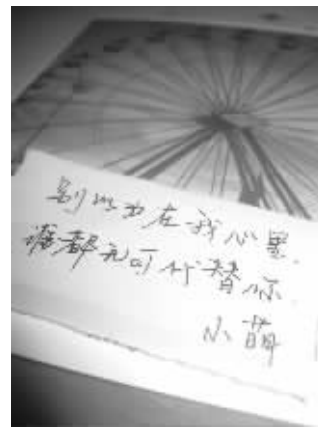 别以为在我心里.
谁都无可代替你.
小萌